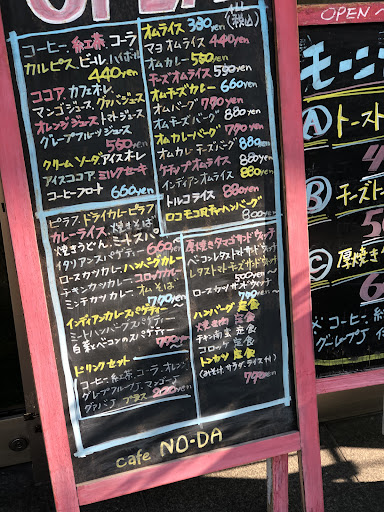 OPEN
コーヒー 紅茶 コーラ
カルピス ビール ハイボール
440yen
ココア カフェオレ
マンゴジュース グァバジュース
オレンジジュース トマトジュース
グレープフルーツジュース
550yen
クリームソーダ アイスオレ
アイスココア ミルクセーキ
コーヒーフロート 660yen
オムライス 330yen
(税込)
マヨオムライス 440yen
オムカレー 550yen
チーズオムライス 550yen
オムチーズカレー 660yen
オムバーグ 770yen
オムチーズバーグ 880yen
オムカレーバーグ 770yen
オムカレーチーズバーグ 880yen
ケチャップオムライス 550yen
インディアンオムライス 550yen
トルコライス 880yen
ロコモコ風チーハンバーグ
800yen
ピラフ ドライカレーピラフ
カレーライス 焼きそば
焼きうどん ミートスパ
イタリアンスパゲティー 660yen
ロースカツカレー ハンバーグカレー
チキンカツカレー コロッケカレー
ミンチカツカレー オムそば
770yen
インディアンカレースパゲティー
ミートハンバーグスパゲティー
白菜とベーコンのスパゲティー
770yen
ドリンクセット
コーヒー 紅茶 コーラ オレンジ
グレープフルーツJ マンゴーJ
グァバJ プラス 200yen
厚焼きタマゴサンドウィッチ
ベーコンレタストマトサンドウィッチ
レタストマトチーズサンドウィッチ
550yen〜
ロースカツサンドウィッチ
770yen〜
ハンバーグ 定食
焼き肉 定食
チキン南蛮 定食
コロッケ 定食
トンカツ 定食
(みそ汁、サラダ、ライス付)
770yen
cafe NO-DA
OPEN
モーニ
Ⓐトースト
Ⓑチーズト
5
Ⓒ厚焼き
6
コーヒー 紅
グレープJ